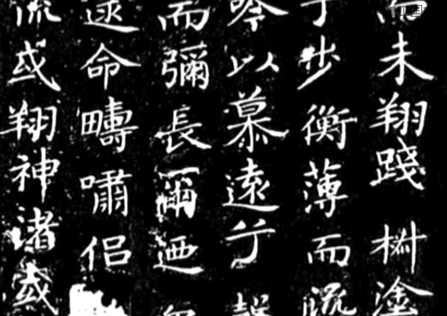 而未翔踐椒塗
步衡薄而流
吟以慕遠兮聲
而彌長爾迺
命疇嘯侶
流或翔神渚或